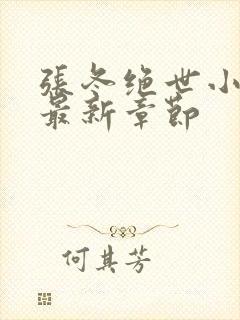 張冬绝世小
最新章節
何其芳